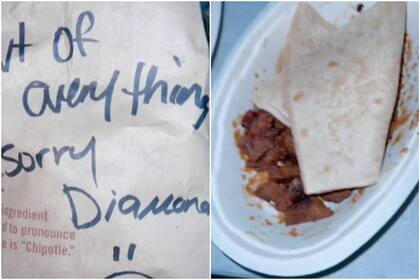 ut of
every thing
sorry
Diamond
ngredient
d to pronounce
e is "Chipotle."